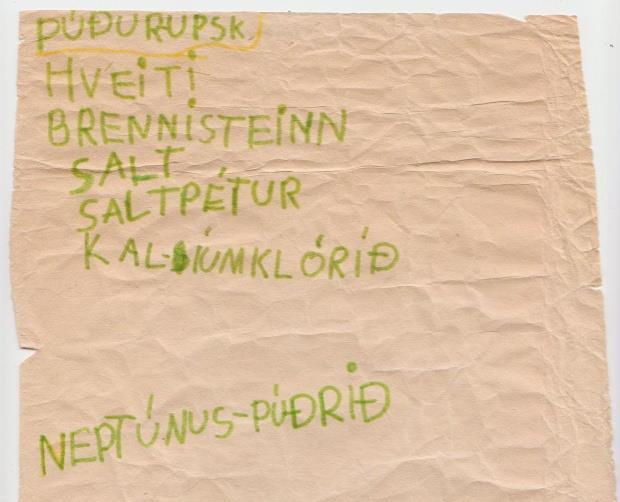 PÚÐURUPSK.
HVEITI
BRENNISTEINN
SALT
SALTPÉTUR
KAL-SÍUMKLÓRÍÐ
NEPTÚNUS-PÚÐRIÐ